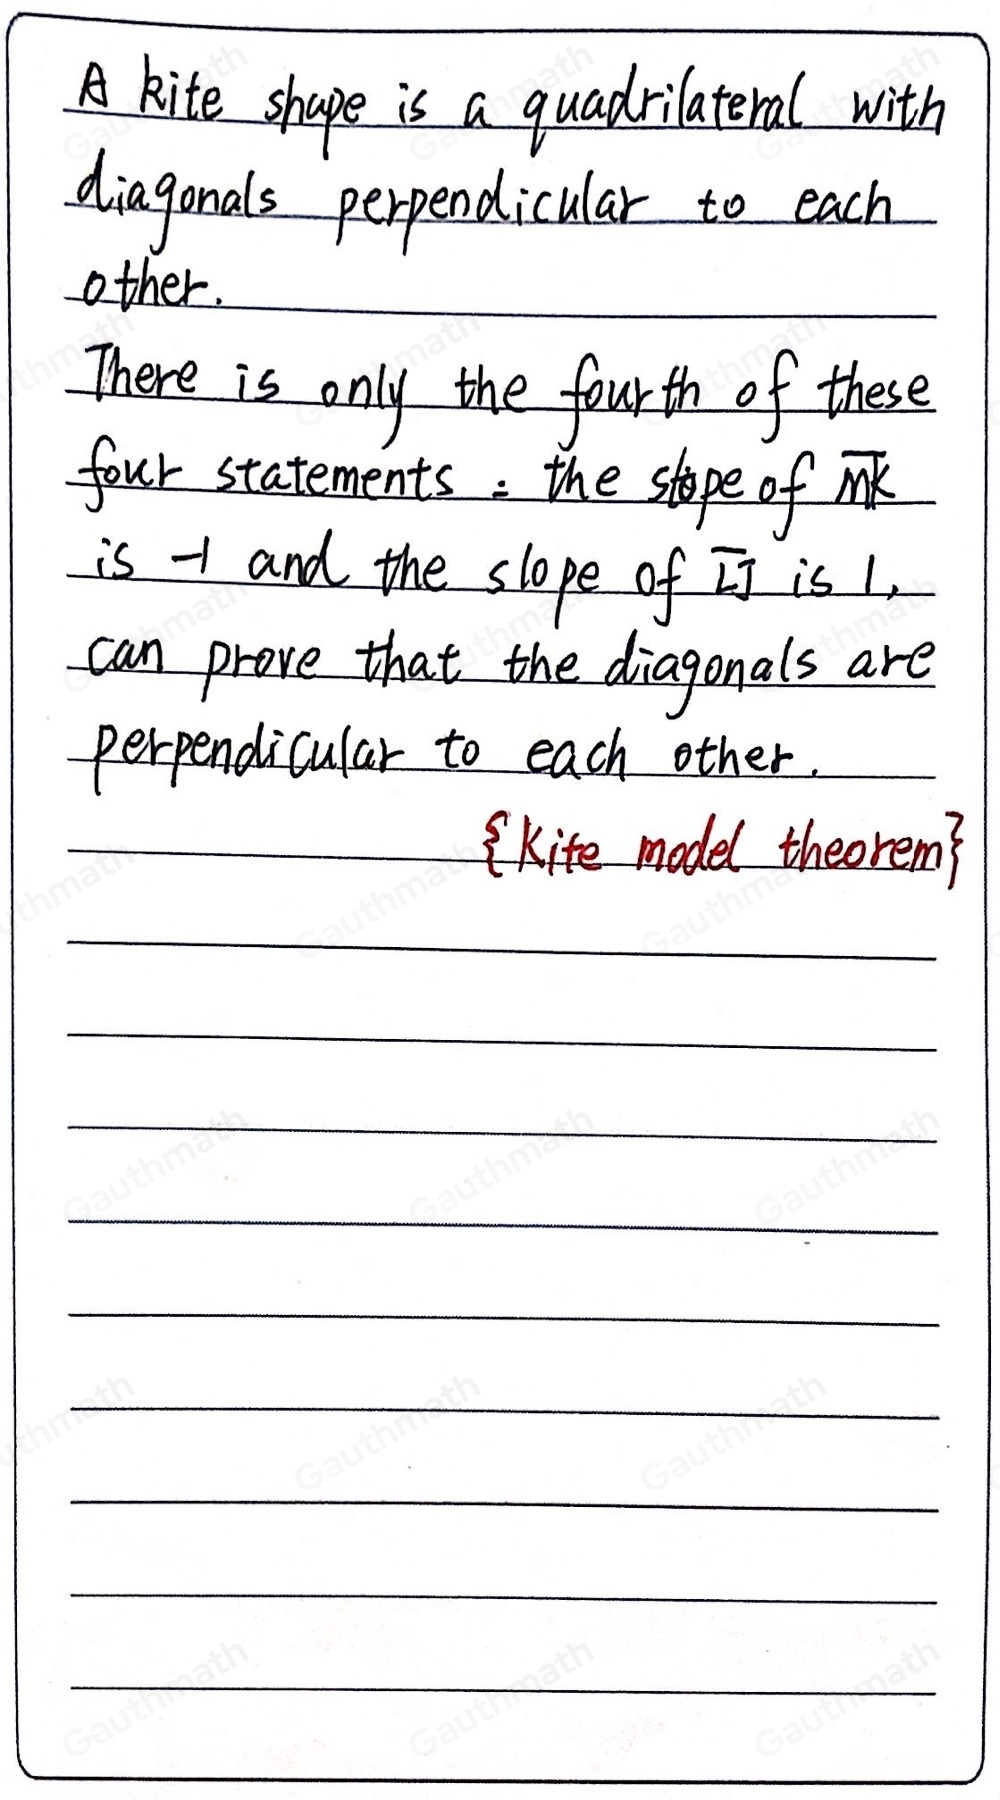 A kite shape is a quadrilateral with
diagonals perpendicular to each
other.
There is only the fourth of these
four statements : the slope of MK
is -1 and the slope of LJ is 1,
can prove that the diagonals are
perpendicular to each other.
{Kite model theorem}
Gauthmath